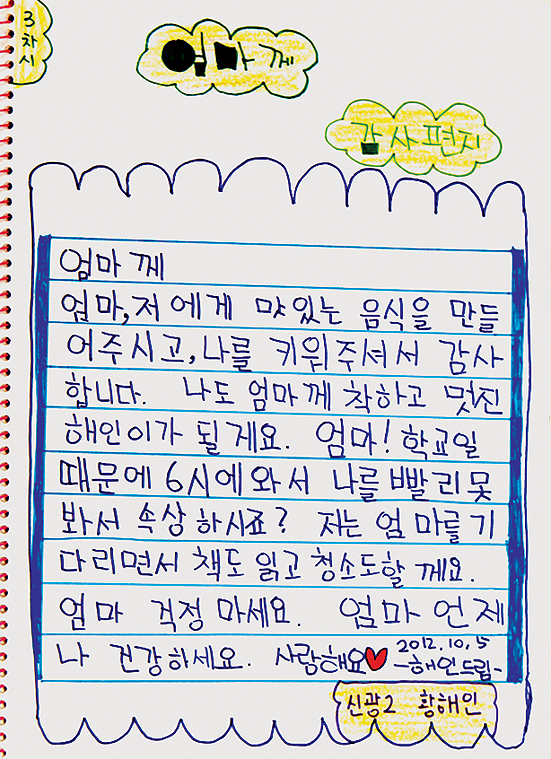 3
차
시
엄마께
감사편지
엄마께
엄마, 저에게 맜있는 음식을 만들
어주시고, 나를 키워주셔서 감사
합니다. 나도 엄마께 착하고 멋진
해인이가 될게요. 엄마! 학교일
때문에 6시에와서 나를 빨리못
봐서 속상하시죠? 저는 엄마를 기
다리면서 책도 읽고 청소도할께요.
엄마 걱정 마세요. 엄마 언제
나 건강하세요. 사랑해요♥ 2012.10.5
-해인드림-
신광2 황해인